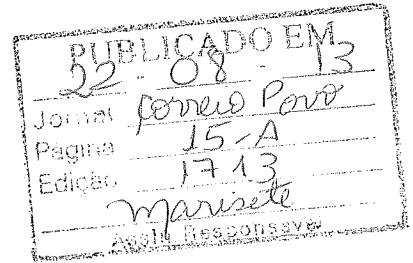 PUBLICADO EM
22 - 08 - 13
Jornal Correio Povo
Página 15-A
Edição 1713
Marisete
Assin. Responsável